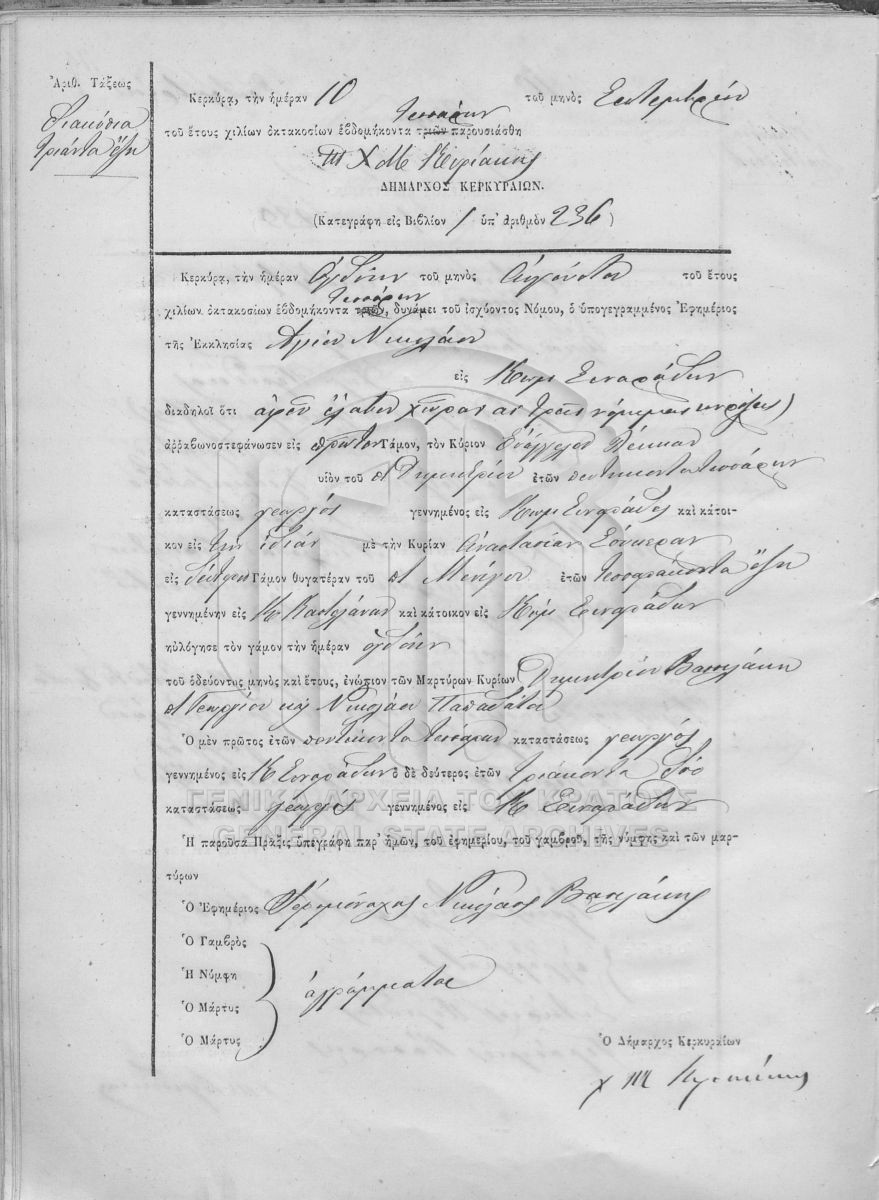 Ἀριθ. Τάξεως
Διακόσια
τριάντα ἕξη
Κερκύρα, τὴν ἡμέραν 10 τοῦ μηνὸς Σεπτεμβρίου
τεσσάρων
τοῦ ἔτους χιλίων ὀκτακοσίων ἑβδομήκοντα τριῶν παρουσιάσθη
Χ Μ Κυριάκης
ΔΗΜΑΡΧΟΣ ΚΕΡΚΥΡΑΙΩΝ.
(Κατεγράφη εἰς Βιβλίον 1 ὑπ' ἀριθμὸν 236)
Κερκύρα, τὴν ἡμέραν ὀγδόην τοῦ μηνὸς Αὐγούστου τοῦ ἔτους
τεσσάρων
χιλίων ὀκτακοσίων ἑβδομήκοντα τριῶν, δυνάμει τοῦ ἰσχύοντος Νόμου, ὁ ὑπογεγραμμένος Ἐφημέριος
τῆς Ἐκκλησίας Ἁγίου Νικολάου
εἰς Κώμη Σιναράδων
διαδηλοῖ ὅτι ἀφοῦ ἔλαβον χώραν αἱ τρεῖς νόμιμαι κηρύξεις
ἀῤῥαβωνοστεφάνωσεν εἰς πρῶτον Γάμον, τὸν Κύριον Εὐάγγελον
υἱὸν τοῦ Δημητρίου ἐτῶν πεντήκοντα τεσσάρων
καταστάσεως γεωργός γεννημένος εἰς Κώμη Σιναράδες καὶ κάτοι-
κον εἰς τὴν ἰδίαν μὲ τὴν Κυρίαν Ἀναστασίαν
εἰς δεύτερον Γάμον θυγατέραν τοῦ ἐτῶν τεσσαράκοντα ἕξη
γεννημένην εἰς Καστελάνους καὶ κάτοικον εἰς Κώμη Σιναράδων
ηὐλόγησε τὸν γάμον τὴν ἡμέραν ὀγδόην
τοῦ ὁδεύοντος μηνὸς καὶ ἔτους, ἐνώπιον τῶν Μαρτύρων Κυρίων Δημητρίου Βασιλάκη
Γεωργίου καὶ Νικολάου Παπαδάτου
Ὁ μὲν πρῶτος ἐτῶν πεντήκοντα τεσσάρων καταστάσεως γεωργός
γεννημένος εἰς Κ Σιναράδων ὁ δὲ δεύτερος ἐτῶν τριάκοντα δύο
καταστάσεως γεωργός γεννημένος εἰς Κ Σιναράδων
ΓΕΝΙΚΑ ΑΡΧΕΙΑ ΤΟΥ ΚΡΑΤΟΥΣ
GENERAL STATE ARCHIVES
Ἡ παροῦσα Πρᾶξις ὑπεγράφη παρ' ἡμῶν, τοῦ ἐφημερίου, τοῦ γαμβροῦ, τῆς νύμφης καὶ τῶν μαρ-
τύρων
Ὁ Ἐφημέριος Ἱερομόναχος Νικόλαος Βασιλάκης
Ὁ Γαμβρὸς
Ἡ Νύμφη
ἀγράμματοι
Ὁ Μάρτυς
Ὁ Μάρτυς
Ὁ Δήμαρχος Κερκυραίων
Χ Μ Κυριάκης